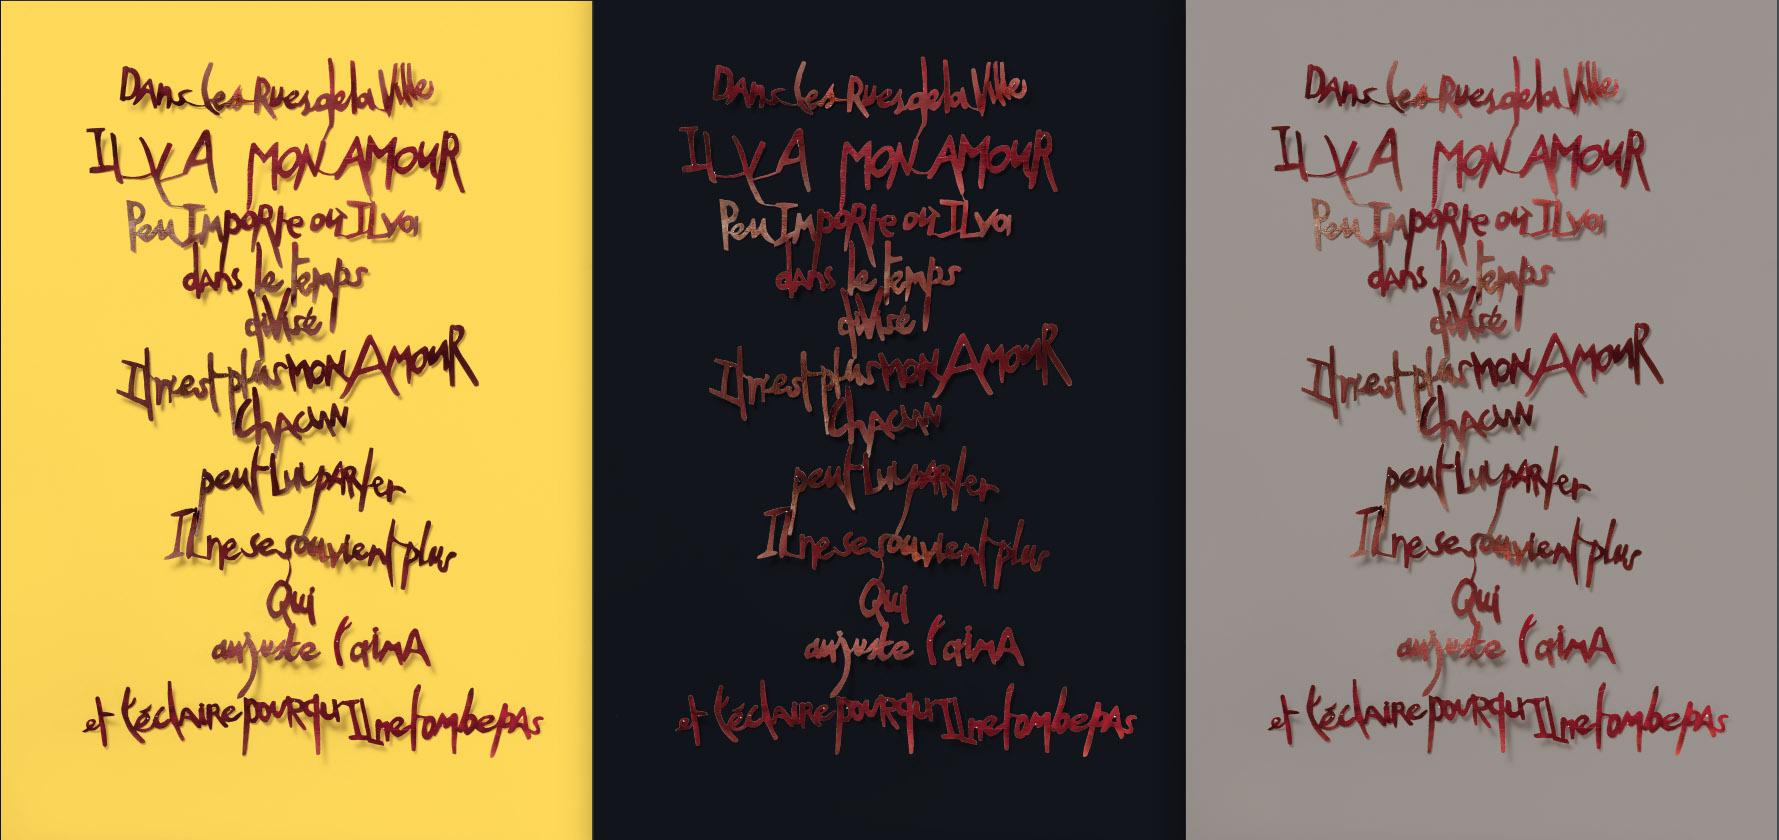 DAns les Rues de la Ville
IL y A MON AMOUR
Peu ImpoRte où IL va
dAns le temps
diVisé
Il n'est plus mON AMOUR
ChAcuN
peut Lui pARler
IL ne se souvient plus
Qui
au juste l'aimA
et l'éclAire pouRqu'IL ne tombe pAs
DAns les Rues de la Ville
IL y A MON AMOUR
Peu ImpoRte où IL va
dAns le temps
diVisé
Il n'est plus mON AMOUR
ChAcuN
peut Lui pARler
IL ne se souvient plus
Qui
au juste l'aimA
et l'éclAire pouRqu'IL ne tombe pAs
DAns les Rues de la Ville
IL y A MON AMOUR
Peu ImpoRte où IL va
dAns le temps
diVisé
Il n'est plus mON AMOUR
ChAcuN
peut Lui pARler
IL ne se souvient plus
Qui
au juste l'aimA
et l'éclAire pouRqu'IL ne tombe pAs